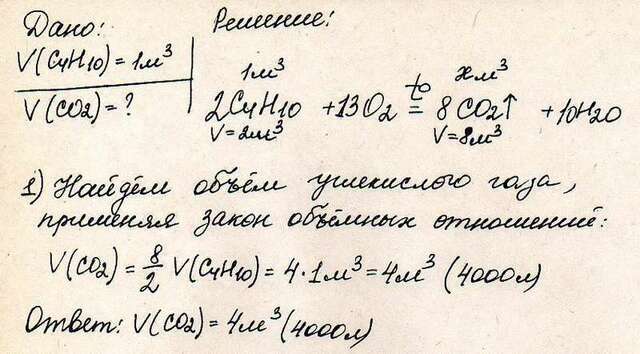 Дано:
V(C4H10) = 1м³
V(CO2) = ?
Решение:
1м³ xм³
2C4H10 + 13O2 t°= 8CO2↑ + 10H2O
V=2м³ V=8м³
1) Найдём объём углекислого газа,
применяя закон объёмных отношений:
V(CO2) = 8/2 V(C4H10) = 4·1м³ = 4м³ (4000л)
Ответ: V(CO2) = 4м³ (4000л)